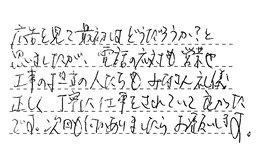 広告を見て最初はどうだろうか?と
思いましたが、電話の応対も営業や
工事の担当の人たちも みなさん礼儀
正しく 丁寧に仕事をされていて 良かった
です。次回も何かありましたら お願いします。